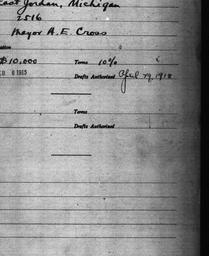 East Jordan, Michigan
2516
Mayor A. E. Cross
$10,000 Terms 10%
6 1915 Drafts Authorized April 29, 1918
Terms
Drafts Authorized